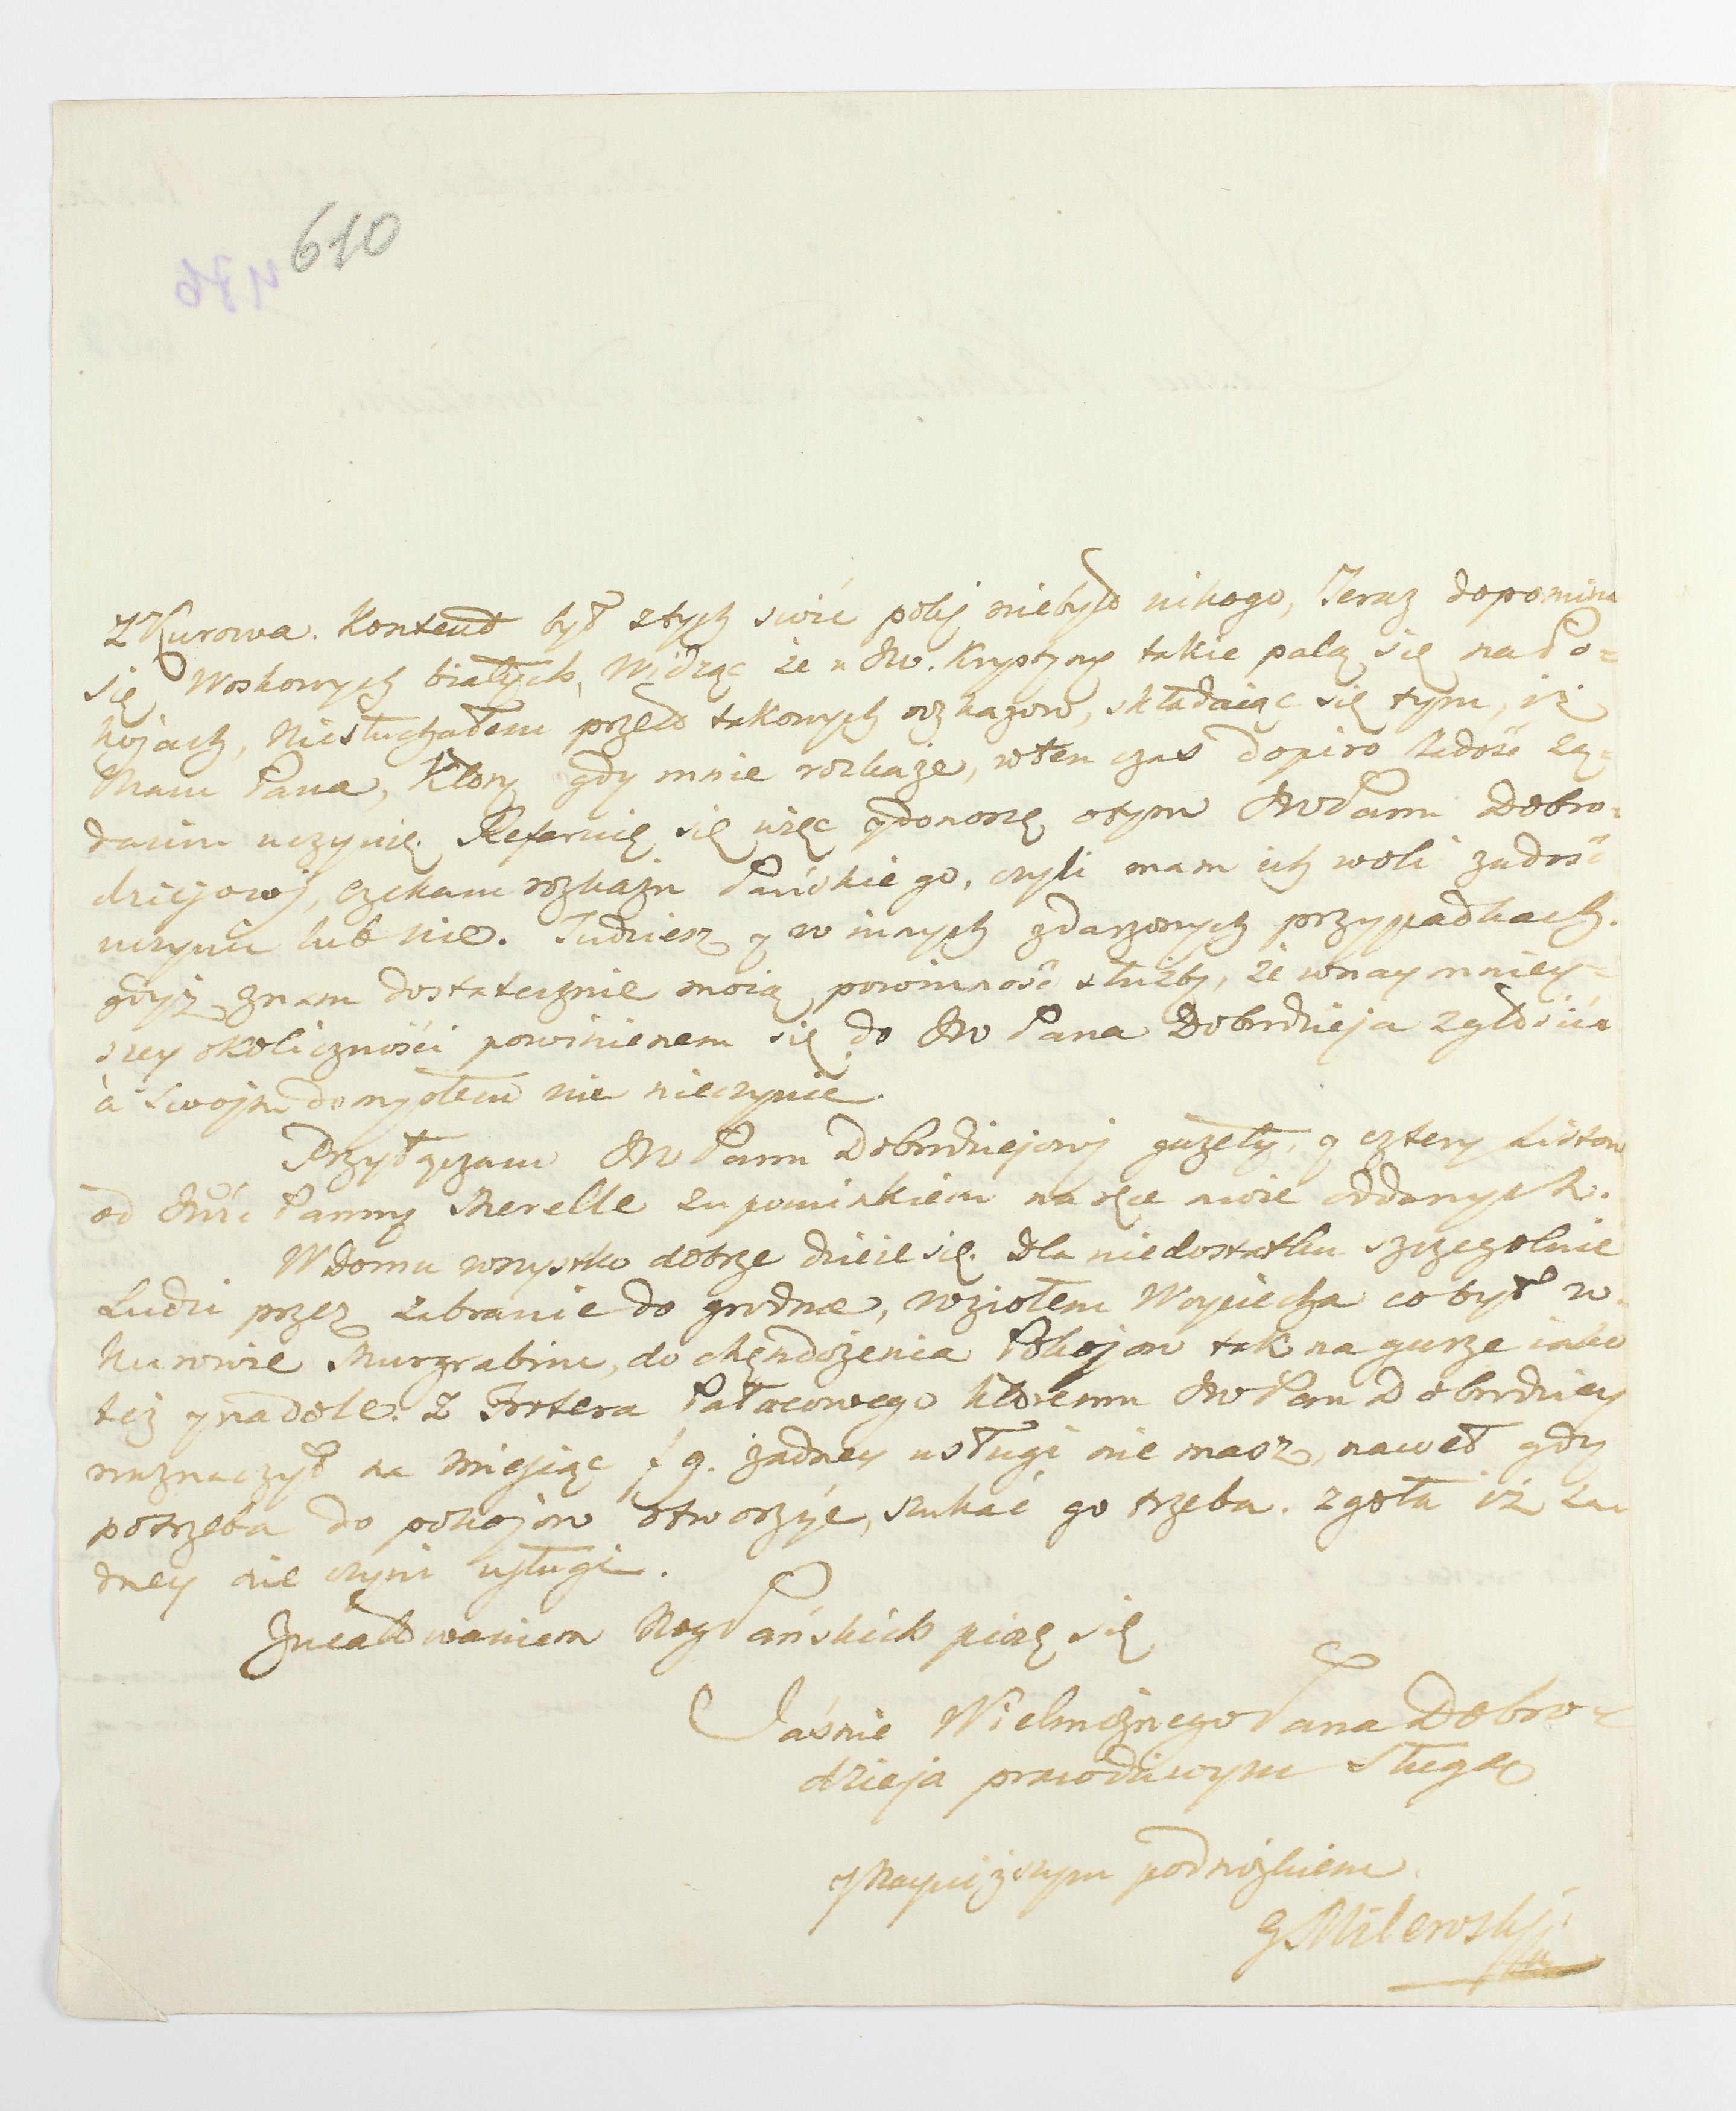 610
476
Z Kurowa. Kontent był ztych swic poki niebyło nikogo, Teraz dopomina
się Woskowych białych, Widząc że u JW. Krystyny takie palą się na Po=
kojach, Niesłuchałem przeto takowych rozkazow, składaiąc się tym, iż
Mam Pana, Ktory gdy mnie rozkaże, w ten czas dopiro zadość żą=
daniu uczynię. Referuię się więc y donoszę o tym JW Panu Dobro=
dziejowi, czekam rozkazu Pańskiego, czyli mam ich woli zadość
uczynic lub nie. Tudziesz y w innych zdarzonych przypadkach.
gdyż znam dostatecznie moią powinność służby, że w naymniey=
szey okoliczności powinienem się do JW Pana Dobrodzieja zgłosić
à swojm domysłem nic nieczynić.
Przyłączam JW Panu Dobrodziejowi gazety, y cztery Listow
od Jmći Panny Merelle z upominkiem na ręce moie oddanych.
W Domu wszystko dobrze dzieie się. Dla niedostatku szczegolnie
Ludzi przez zabranie do grodna, wziołem Woyciecha co był w
Kurowie Murgrabim, do chędożenia Pokojow tak na gurze iako
też y na dole. Z Frotera Pałacowego ktoremu JW Pan Dobrodziey
naznaczył na Miesiąc f 9. żadney usługi nie masz, nawet gdy
potrzeba do pokojow otworzyć, szukać go trzeba. zgoła iż ża
dney nie czyni usługi.
Z ucałowaniem Nog Pańskich piszę się
Jaśnie Wielmożnego Pana Dobro=
dzieja prawdziwym sługą
y Nayniższym podnożkiem
G Milewskij